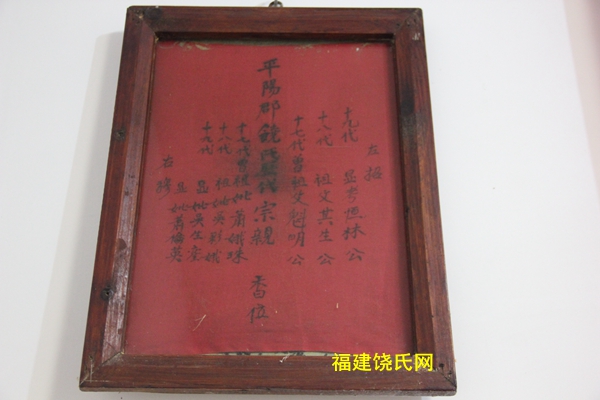 左昭
十九代 显考恒林公
十八代 祖父其生公
十七代曾祖父魁明公
平陽郡饒氏歷代宗親 香位
十七代曾祖妣蕭娥珠
十八代 祖妣吳彩娥
十九代 显妣吴生金
显妣翁瑞英
右穆
福建饶氏网